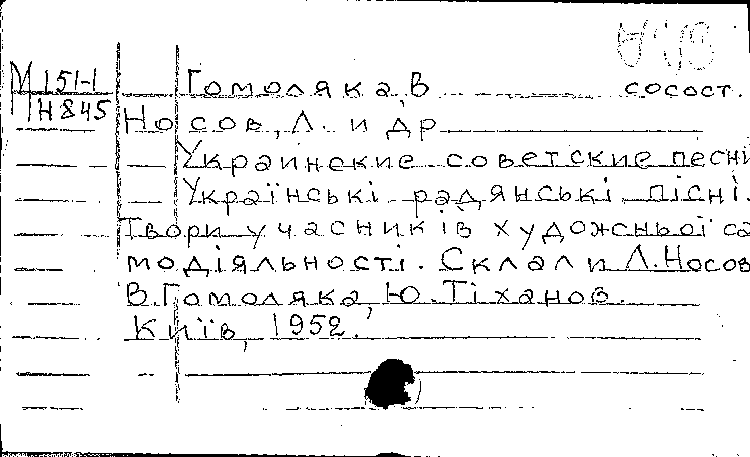 М 151-1 Гомоляка, В сосост.
Н 845 Носов, Л. и др
Украинские советские песни
Українські радянські пісні.
Твори учасників художньої са
модіяльності. Склали Л. Носов
В. Гомоляка, Ю. Тіханов.
Київ, 1952.